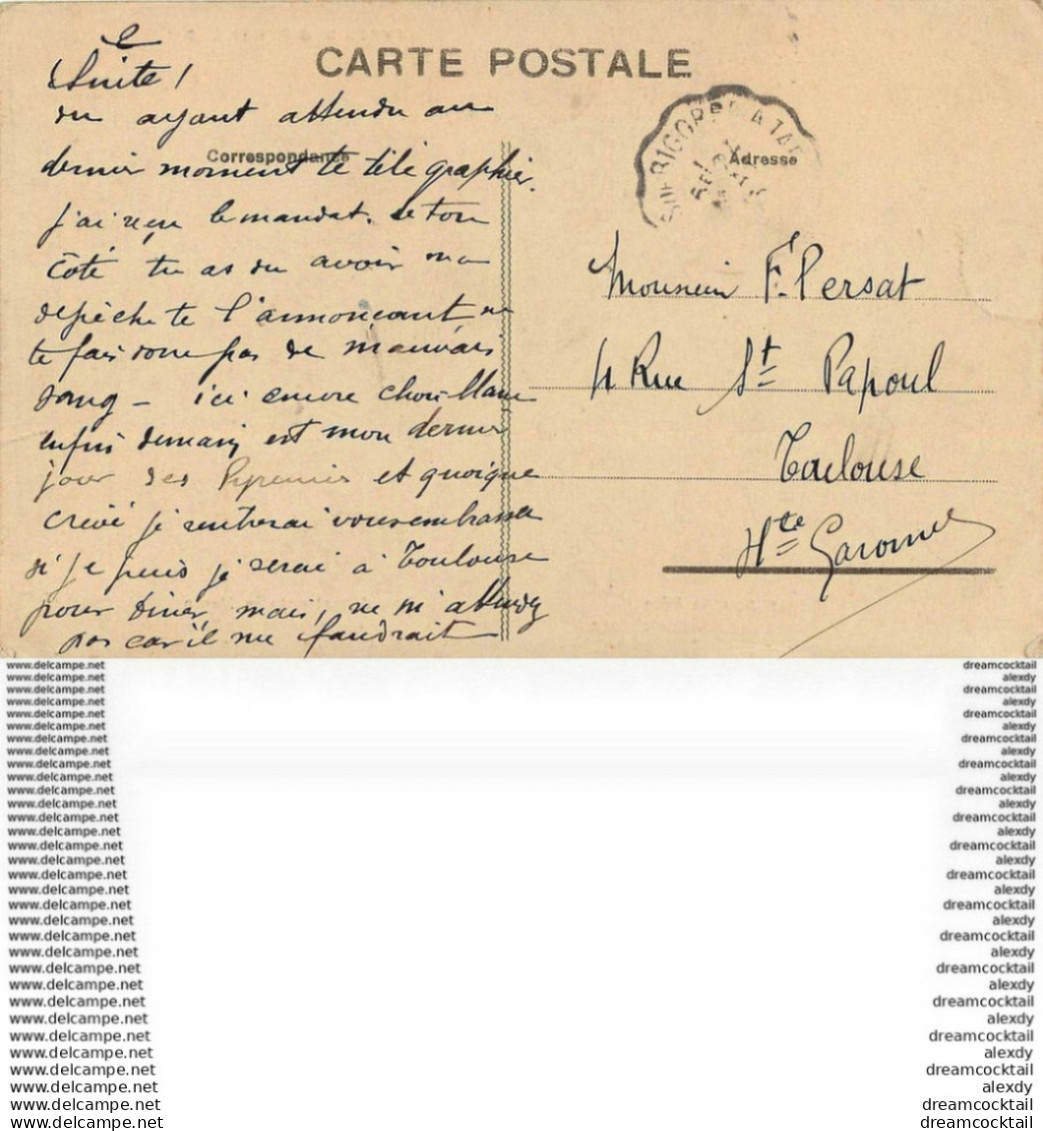 CARTE POSTALE
Correspondance
Adresse
(Suite)
ou ayant attendu au
dernier moment te télégraphier.
j'ai reçu le mandat. de ton
côté tu as du avoir ma
depêche te l'annonçant ne
te fais donc pas de mauvais
sang – ici encore chou blanc
enfin demain est mon dernier
jour des Pyrenées et quoique
crevé je rentrerai vous embrasser
si je puis je serai à Toulouse
pour diner, mais, ne m'attendez
pas car il me faudrait
BIGORRE A TAR
Monsieur F. Persat
4 Rue St Papoul
Toulouse
Hte Garonne
www.delcampe.net dreamcocktail
www.delcampe.net alexdy
www.delcampe.net dreamcocktail
www.delcampe.net alexdy
www.delcampe.net dreamcocktail
www.delcampe.net alexdy
www.delcampe.net dreamcocktail
www.delcampe.net alexdy
www.delcampe.net dreamcocktail
www.delcampe.net alexdy
www.delcampe.net dreamcocktail
www.delcampe.net alexdy
www.delcampe.net dreamcocktail
www.delcampe.net alexdy
www.delcampe.net dreamcocktail
www.delcampe.net alexdy
www.delcampe.net dreamcocktail
www.delcampe.net alexdy
www.delcampe.net dreamcocktail
www.delcampe.net alexdy
www.delcampe.net dreamcocktail
www.delcampe.net alexdy
www.delcampe.net dreamcocktail
www.delcampe.net alexdy
www.delcampe.net dreamcocktail
www.delcampe.net alexdy
www.delcampe.net dreamcocktail
www.delcampe.net alexdy
www.delcampe.net dreamcocktail
www.delcampe.net alexdy
www.delcampe.net dreamcocktail
www.delcampe.net dreamcocktail